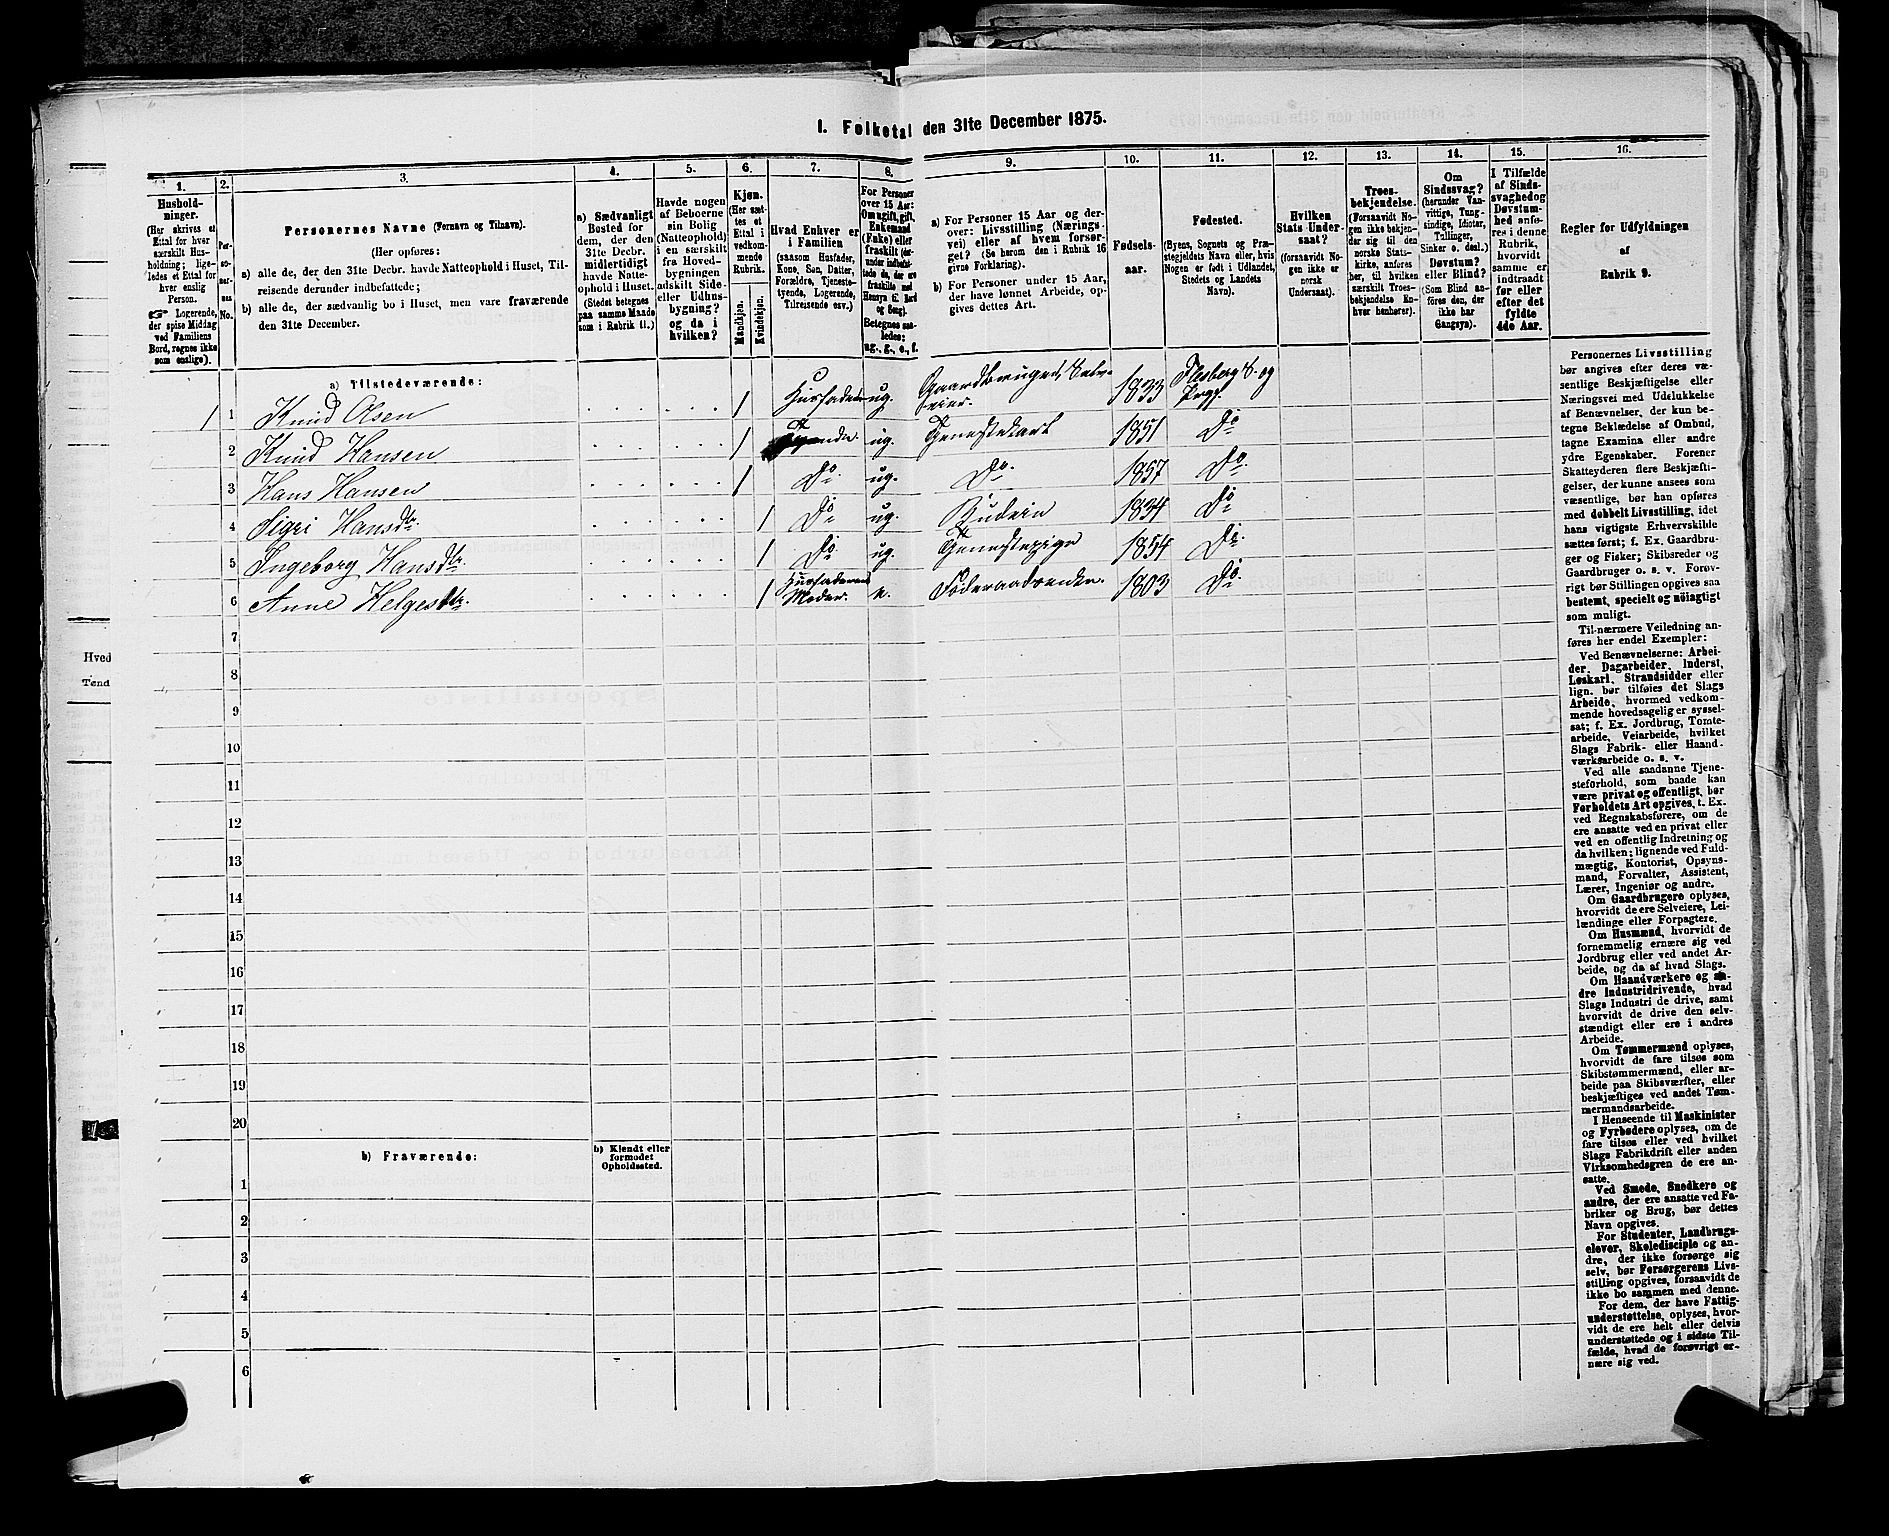 I. Folketal den 31te December 1875.
1.
Hushold-
ninger.
(Her skrives et
Ettal for hver
særskilt Hus-
holdning; lige-
ledes et Ettal for
hver enslig
Person.
☞ Logerende,
der spise Middag
ved Familiens
Bord, regnes ikke
som enslige).
2.
Per-
so-
ner-
nes
No.
3.
Personernes Navne (Fornavn og Tilnavn).
(Her opføres:
a) alle de, der den 31te Decbr. havde Natteophold i Huset, Til-
reisende derunder indbefattede;
b) alle de, der sædvanlig bo i Huset, men vare fraværende
den 31te December.
4.
a) Sædvanligt
Bosted for
dem, der den
31te Decbr.
midlertidigt
havde Natte-
ophold i Huset.
(Stedet betegnes
paa samme Maade
som i Rubrik 11.)
5.
Havde nogen
af Beboerne
sin Bolig
(Natteophold)
i en særskilt
fra Hoved-
bygningen
adskilt Side-
eller Udhus-
bygning?
og da i
hvilken?
6.
Kjøn.
(Her sæt-
tes et
Ettal i
vedkom-
mende
Rubrik.
Mandkjøn.
Kvindekjøn.
7.
Hvad Enhver er
i Familien
(saasom Husfader,
Kone, Søn, Datter,
Forældre, Tjeneste-
tyende, Logerende,
Tilreisende osv.)
8.
For Personer
over 15 Aar:
Om ugift, gift,
Enkemand
(Enke) eller
fraskilt (der-
under indbefat-
tede de, der ere
fraskilte med
Hensyn til Bord
og Seng).
Betegnes saa-
ledes:
ug., g., e., f.
9.
a) For Personer 15 Aar og der-
over: Livsstilling (Nærings-
vei) eller af hvem forsør-
get. (Se herom den i Rubrik 16
givne Forklaring).
b) For Personer under 15 Aar,
der have lønnet Arbeide, op-
gives dettes Art.
10.
Fødsels-
aar.
11.
Fødested.
(Byens, Sognets og Præ-
stegjeldets Navn eller, hvis
Nogen er født i Udlandet,
Stedets og Landets
Navn).
12.
Hvilken
Stats Under-
saat?
(forsaavidt No-
gen ikke er
norsk
Undersaat).
13.
Troes-
bekjendelse.
(Forsaavidt No-
gen ikke bekjen-
der sig til den
norske Stats-
kirke, anføres
her, til hvilken
særskilt Troes-
bekjendelse En-
hver henhører).
14.
Om
Sindssvag?
(herunder Van-
vittige, Tung-
sindige, Idioter,
Tullinger,
Sinker o. desl.)
Døvstum?
eller Blind?
(Som Blind an-
føres den, der
ikke har
Gangsyn).
15.
I Tilfælde
af Sinds-
svaghed og
Døvstum-
hed anfø-
res i denne
Rubrik,
hvorvidt
samme er
indtraadt
før eller
efter det
fyldte
4de Aar.
16.
Regler for Udfyldningen
af
Rubrik 9.
a) Tilstedeværende:
1 1 Knud Olsen 1 Husfader ug. Gaardbruger, Selv-
eier. 1833 Flesberg S. og
Prgj.
2 Knud Hansen 1 ug. Tjenestekarl 1851 Do
3 Hans Hansen 1 Do. ug. Do. 1857 Do.
4 Sigri Hansdtr. 1 Do ug. Budeie 1834 Do
5 Ingeborg Hansdtr. 1 Do. ug. Tjenestepige 1854 Do.
6 Anne Helgesdtr. 1 Husfaderens
Moder. e. Føderaadsenke. 1803 Do.
7
8
9
10
11
12
13
14
15
16
17
18
19
20
b) Fraværende:
b) Kjendt eller
formodet
Opholdssted.
1
2
3
4
5
6
Personernes Livsstilling
bør angives efter deres væ-
sentlige Beskjæftigelse eller
Næringsvei med Udelukkelse
af Benævnelser, der kun be-
tegne Beklædelse af Ombud,
tagne Examina eller andre
ydre Egenskaber. Forener
Skatteyderen flere Beskjæfti-
gelser, der kunne ansees som
væsentlige, bør han opføres
med dobbelt Livsstilling, idet
hans vigtigste Erhvervskilde
sættes først; f. Ex. Gaardbru-
ger og Fisker; Skibsreder og
Gaardbruger o. s. v. Forøv-
rigt bør Stillingen opgives saa
bestemt, specielt og nöiagtigt
som muligt.
Til nærmere Veiledning an-
føres her endel Exempler:
Ved Benævnelserne: Arbei-
der, Dagarbeider, Inderst,
Løskarl, Strandsidder eller
lign. bør tilføies det Slags
Arbeide, hvormed vedkom-
mende hovedsagelig er syssel-
sat; f. Ex. Jordbrug, Tomte-
arbeide, Veiarbeide, hvilket
Slags Fabrik- eller Haand-
værksarbeide o. s. v.
Ved alle saadanne Tjene-
steforhold, som baade kan
være privat og offentligt, bør
Forholdets Art opgives, t. Ex.
ved Regnskabsførere, om de
ere ansatte ved en privat eller
ved en offentlig Indretning og
da hvilken; lignende ved Fuld-
mægtig, Kontorist, Opsyns-
mand, Forvalter, Assistent,
Lærer, Ingeniør og andre.
Om Gaardbrugere oplyses,
hvorvidt de ere Selveiere, Lei-
lændinge eller Forpagtere.
Om Husmænd, hvorvidt de
fornemmelig ernære sig ved
Jordbrug eller ved andet Ar-
beide, og da af hvad Slags.
Om Haandværkere og an-
dre Industridrivende, hvad
Slags Industri de drive, samt
hvorvidt de drive den selv-
stændigt eller ere i andres
Arbeide.
Om Tømmermænd oplyses,
hvorvidt de fare tilsøs som
Skibstømmermænd, eller ar-
beide paa Skibsværfter, eller
beskjæftiges ved andet Tøm-
mermandsarbeide.
I Henseende til Maskinister
og Fyrbødere oplyses, om de
fare tilsøs eller ved hvilket
Slags Fabrikdrift eller anden
Virksomhedsgren de ere an-
satte.
Ved Smede, Snedkere og
andre, der ere ansatte ved Fa-
briker og Brug, bør dettes
Navn opgives.
For Studenter, Landbrugs-
elever, Skoledisciple og an-
dre, der ikke forsørge sig
selv, bør Forsørgerens Livs-
stilling opgives, forsaavidt de
ikke bo sammen med denne.
For dem, der have Fattig-
understøttelse, oplyses, hvor-
vidt de ere helt eller delvis
understøttede og i sidste Til-
fælde, hvad de forøvrigt er-
nære sig ved.
Hved
Tønd